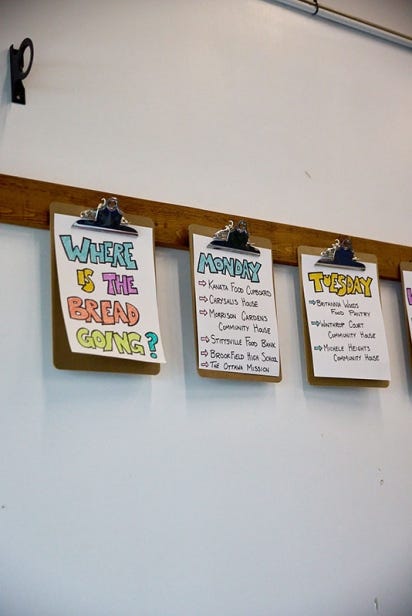 WHERE
IS THE
BREAD
GOING?
MONDAY
⇨ KANATA FOOD CUPBOARD
⇨ CHRYSALIS HOUSE
⇨ MORRISON GARDENS
COMMUNITY HOUSE
⇨ STITTSVILLE FOOD BANK
⇨ BROOKFIELD HIGH SCHOOL
⇨ THE OTTAWA MISSION
TUESDAY
⇨ BRITANNIA WOODS
FOOD PANTRY
⇨ WINTHROP COURT
COMMUNITY HOUSE
⇨ MICHELE HEIGHTS
COMMUNITY HOUSE